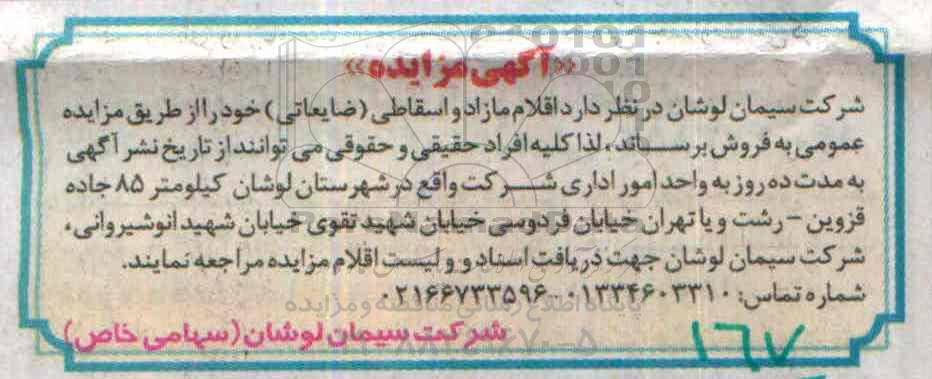 «آگهی مزایده»
شرکت سیمان لوشان در نظر دارد اقلام مازاد و اسقاطی (ضایعاتی) خود را از طریق مزایده
عمومی به فروش برساند، لذا کلیه افراد حقیقی و حقوقی می توانند از تاریخ نشر آگهی
به مدت ده روز به واحد امور اداری شرکت واقع در شهرستان لوشان کیلومتر ۸۵ جاده
قزوین - رشت و یا تهران خیابان فردوسی خیابان شهید تقوی خیابان شهید انوشیروانی،
شرکت سیمان لوشان جهت دریافت اسناد و و لیست اقلام مزایده مراجعه نمایند.
شماره تماس: ۰۱۳۳۴۶۰۳۳۱۰ - ۰۲۱۶۶۷۳۳۵۹۶
پایگاه اطلاع رسانی مناقصه و مزایده
شرکت سیمان لوشان (سهامی خاص)
۱۶۷